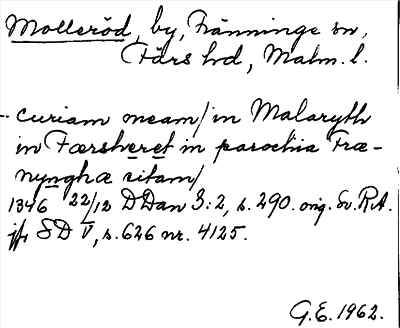 Molleröd, by, Fränninge sn,
Färs hd, Malm. l.
- curiam meam/ in Malaryth
in Færsheret in parochia Fræ-
nynghæ sitam/
1346 22/12 DDan 3:2, s. 290. orig. Sv. R.A.
jfr SD V, s. 626 nr. 4125.
G.E. 1962.